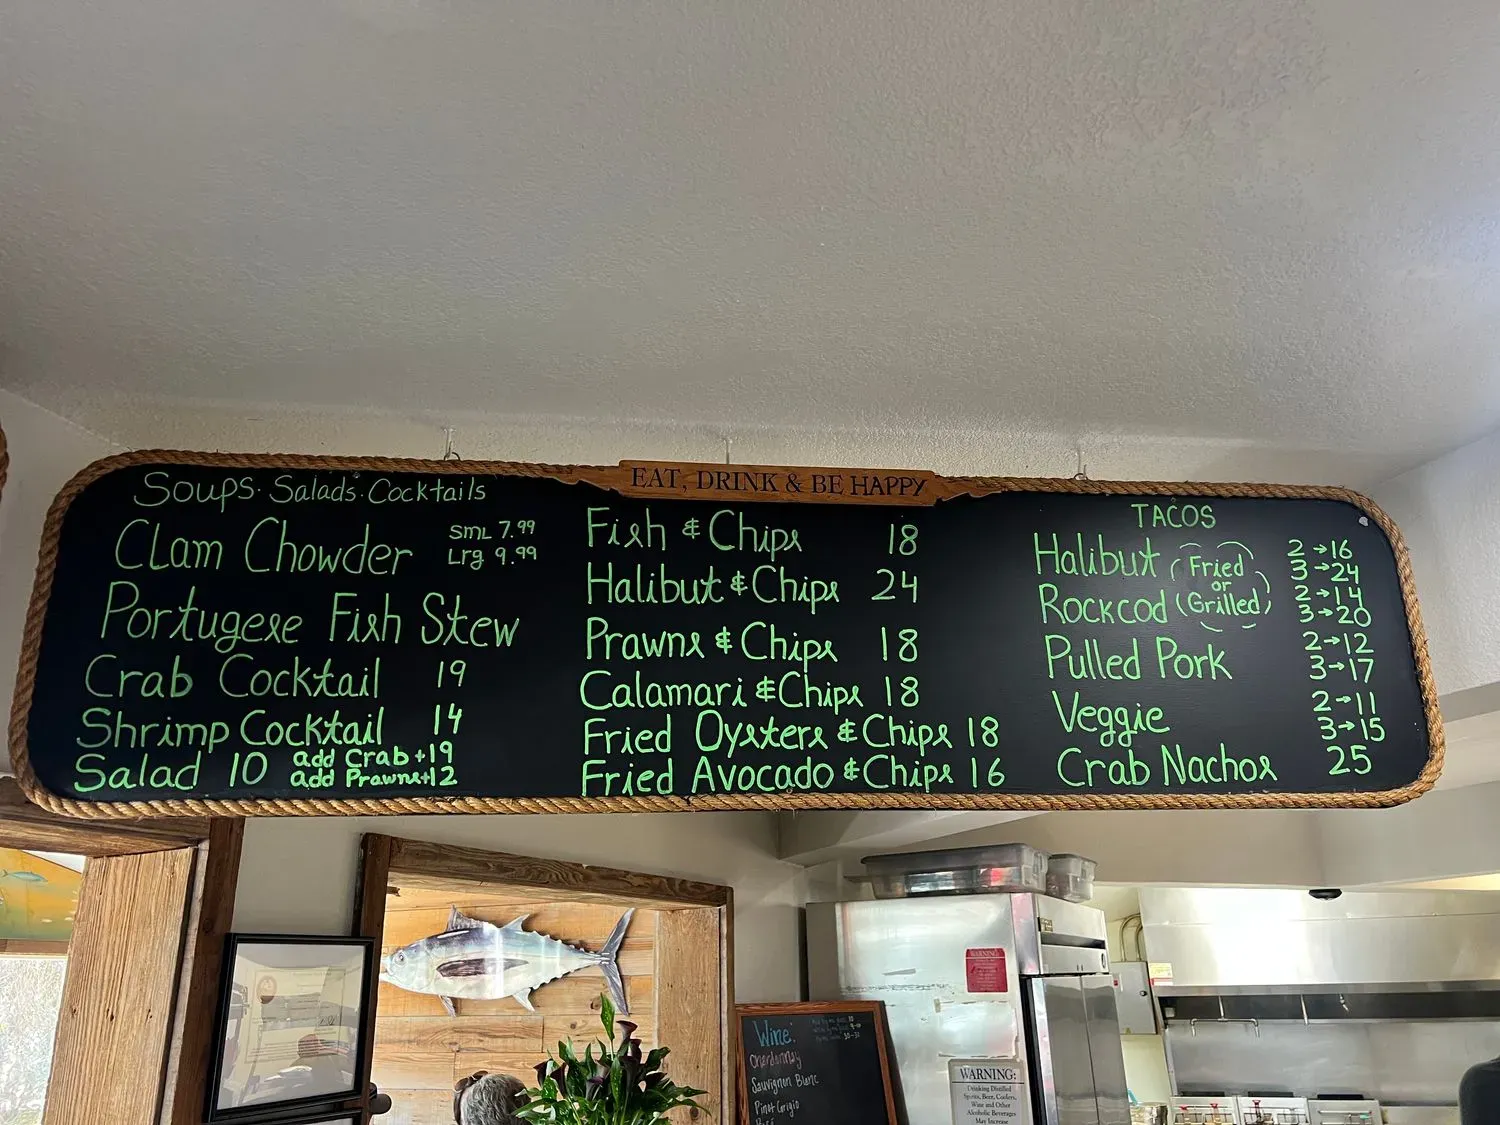 EAT, DRINK & BE HAPPY
Soups · Salads · Cocktails
Clam Chowder SmL 7.99
Lrg 9.99
Portugese Fish Stew
Crab Cocktail 19
Shrimp Cocktail 14
Salad 10 add Crab +19
add Prawns +12
Fish & Chips 18
Halibut & Chips 24
Prawns & Chips 18
Calamari & Chips 18
Fried Oysters & Chips 18
Fried Avocado & Chips 16
TACOS
Halibut (Fried 2→16
or 3→24
Rockcod Grilled) 2→14
3→20
Pulled Pork 2→12
3→17
Veggie 2→11
3→15
Crab Nachos 25
Wine:
Chardonnay
Sauvignon Blanc
Pinot Grigio
WARNING
WARNING:
Drinking Distilled
Spirits, Beer, Coolers,
Wine and Other
Alcoholic Beverages
May Increase